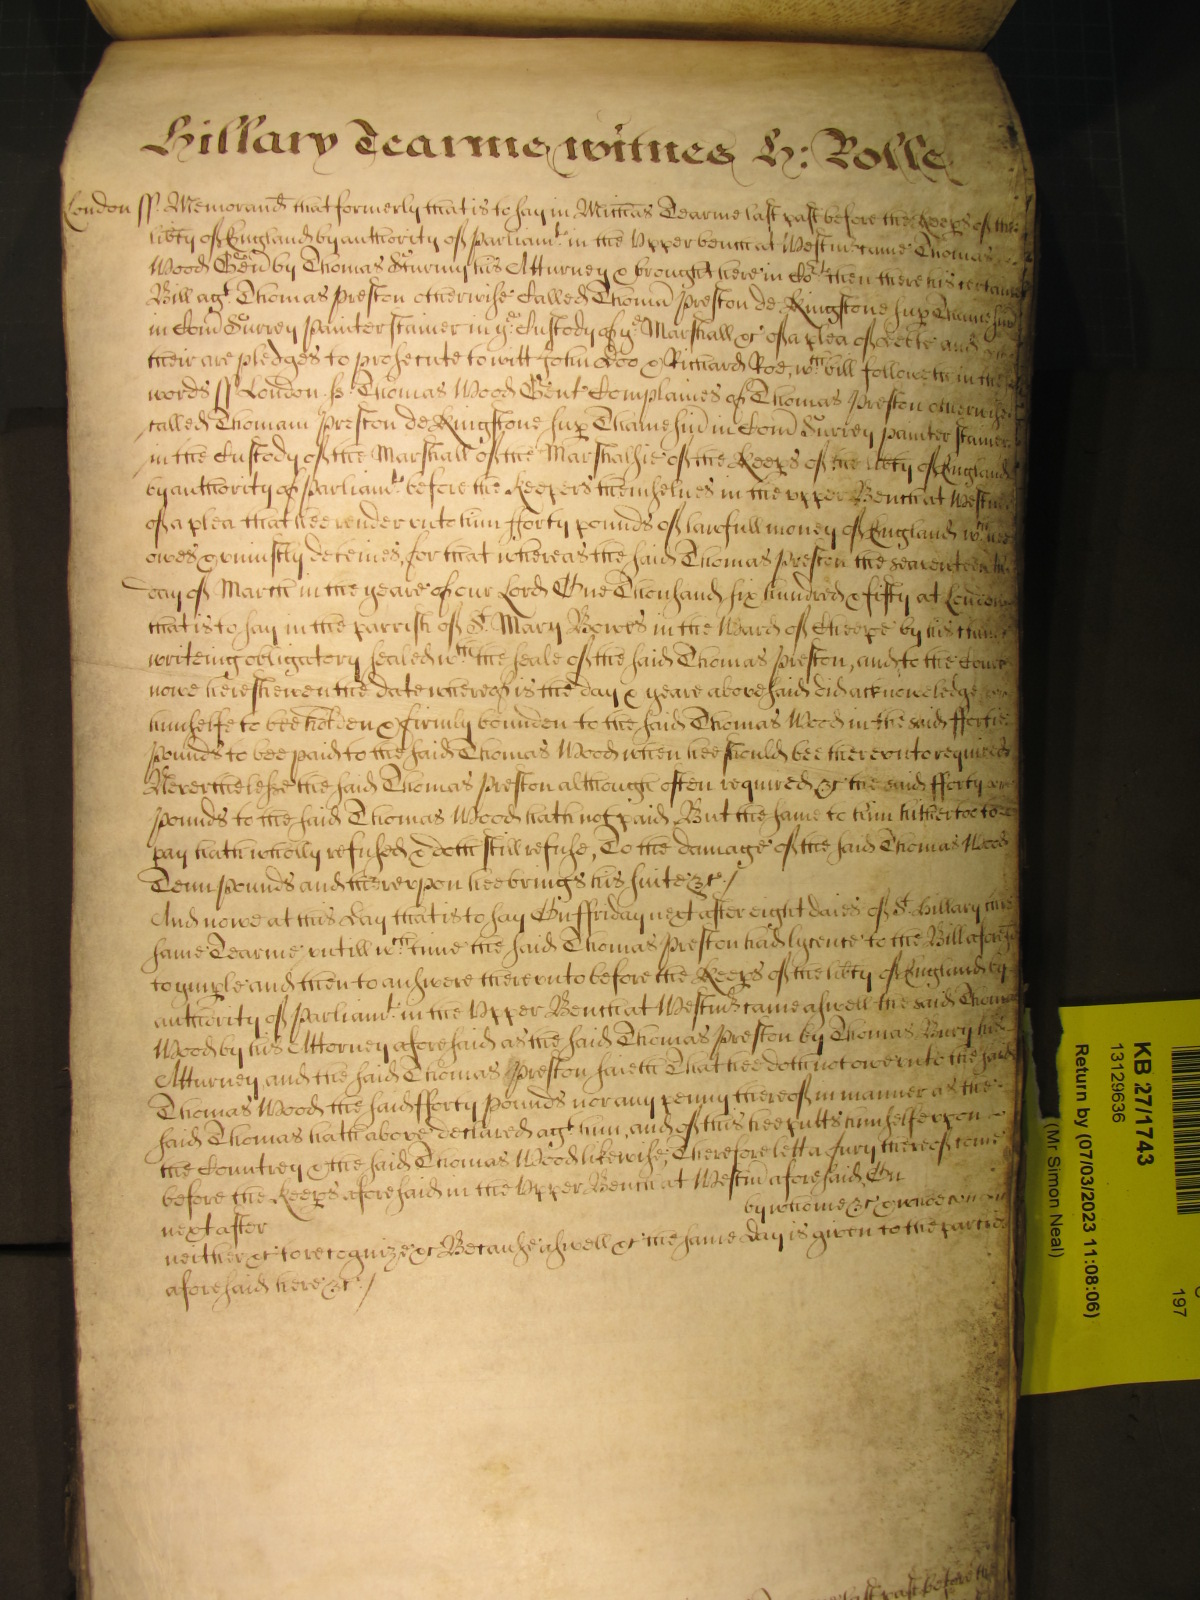 Hillary Tearme witnes H: Rolle
London ss Memorand that formerly that is to say in Micħas Tearme last past before the Keeps of the
lib̃ty of England by authority of Parliamt. in the Vpper bench at Westmr came Thomas
Wood Gen̄ by Thomas Sturmy his Atturney & brought here in Cort then there his certaine
Bill agt. Thomas Preston otherwise Called Thoma Preston de Kingstone sup Thamesin̄
in Com̄ Surrey Painter stainer in ye Custody of ye Marshall &c of a plea of debte and
their are pledges to prosecute to witt John Doo & Richard Roe, wch bill followeth in these
words ss London ss. Thomas Wood Gent Complaines of Thomas Preston otherwise
called Thomam Preston de Kingstone sup Thamesin̄ in Com̄ Surrey painter stainer
in the Custody of the Marshall of the Marshalsie of the Keeps of the lib̃ty of England
by authority of Parliamt. before the Keepers themselves in the vpper Bench at Westmr
of a plea that hee render vnto him fforty pounds of lawfull money of England wch hee
owes & uniustly deteines, for that whereas the said Thomas Preston the seaventeenth
day of March in the yeare of our Lord One Thousand six hundred & fifty at London
that is to say in the parrish of St. Mary Bowes in the Ward of Cheepe by his certaine
writeing obligatory sealed wth the seale of the said Thomas Preston, and to the Court
nowe here shewen the date whereof is the day & yeare abovesaid did acknowledge
himselfe to bee holden & firmly bounden to the said Thomas Wood in the said ffortie
pounds to bee paid to the said Thomas Wood when hee should bee therevnto required
Neverthelesse the said Thomas Preston although often required &c the said fforty
pounds to the said Thomas Wood hath not paid But the same to him hitherto to
pay hath wholly refused & doth still refuse, To the damage of the said Thomas Wood
Tenn pounds and therevpon hee brings his suite &c./
And nowe at this day that is to say On ffriday next after eight daies of St. Hillary this
same Tearme vntill wch time the said Thomas Preston had lycence to the Bill aforesd
to imple and then to answere therevnto before the Keeps of the lib̃ty of England by
authority of Parliamt. in the Vpper Bench at Westmr came aswell the said Thomas
Wood by his Attorney aforesaid as the said Thomas Preston by Thomas Bury his
Atturney and the said Thomas Preston saieth That hee doth not owe vnto the said
Thomas Wood the said fforty pounds nor any penny thereof in manner as the
said Thomas hath above declared agt him, and of this hee putts himselfe vpon
the Countrey & the said Thomas Wood likewise, Therefore lett a Jury thereof come
before the Keeps aforesaid in the Vpper Bench at Westm̄ aforesaid, On
next after by whome &c & whoe
neither &c to recognize &c Because aswell &c the same day is given to the parties
aforesaid here &c./
KB 27/1743
13129636
Return by (07/03/2023 11:08:06)
(Mr Simon Neal)
197
last past before the